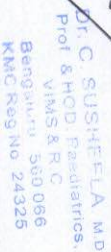 Dr. C. SUSHEELA MD
Prof & HOD Paediatrics,
VIMS & R C
Bengaluru 560 066
KMC Reg No 24325